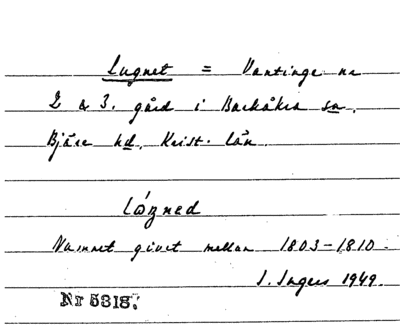 Lugnet = Vantinge nr
2 & 3. gård i Barkåkra sn.
Bjäre hd. Krist. län.
lǿgned
Namnet givet mellan 1803-1810.
I. Ingers 1949.
Nr 5818.